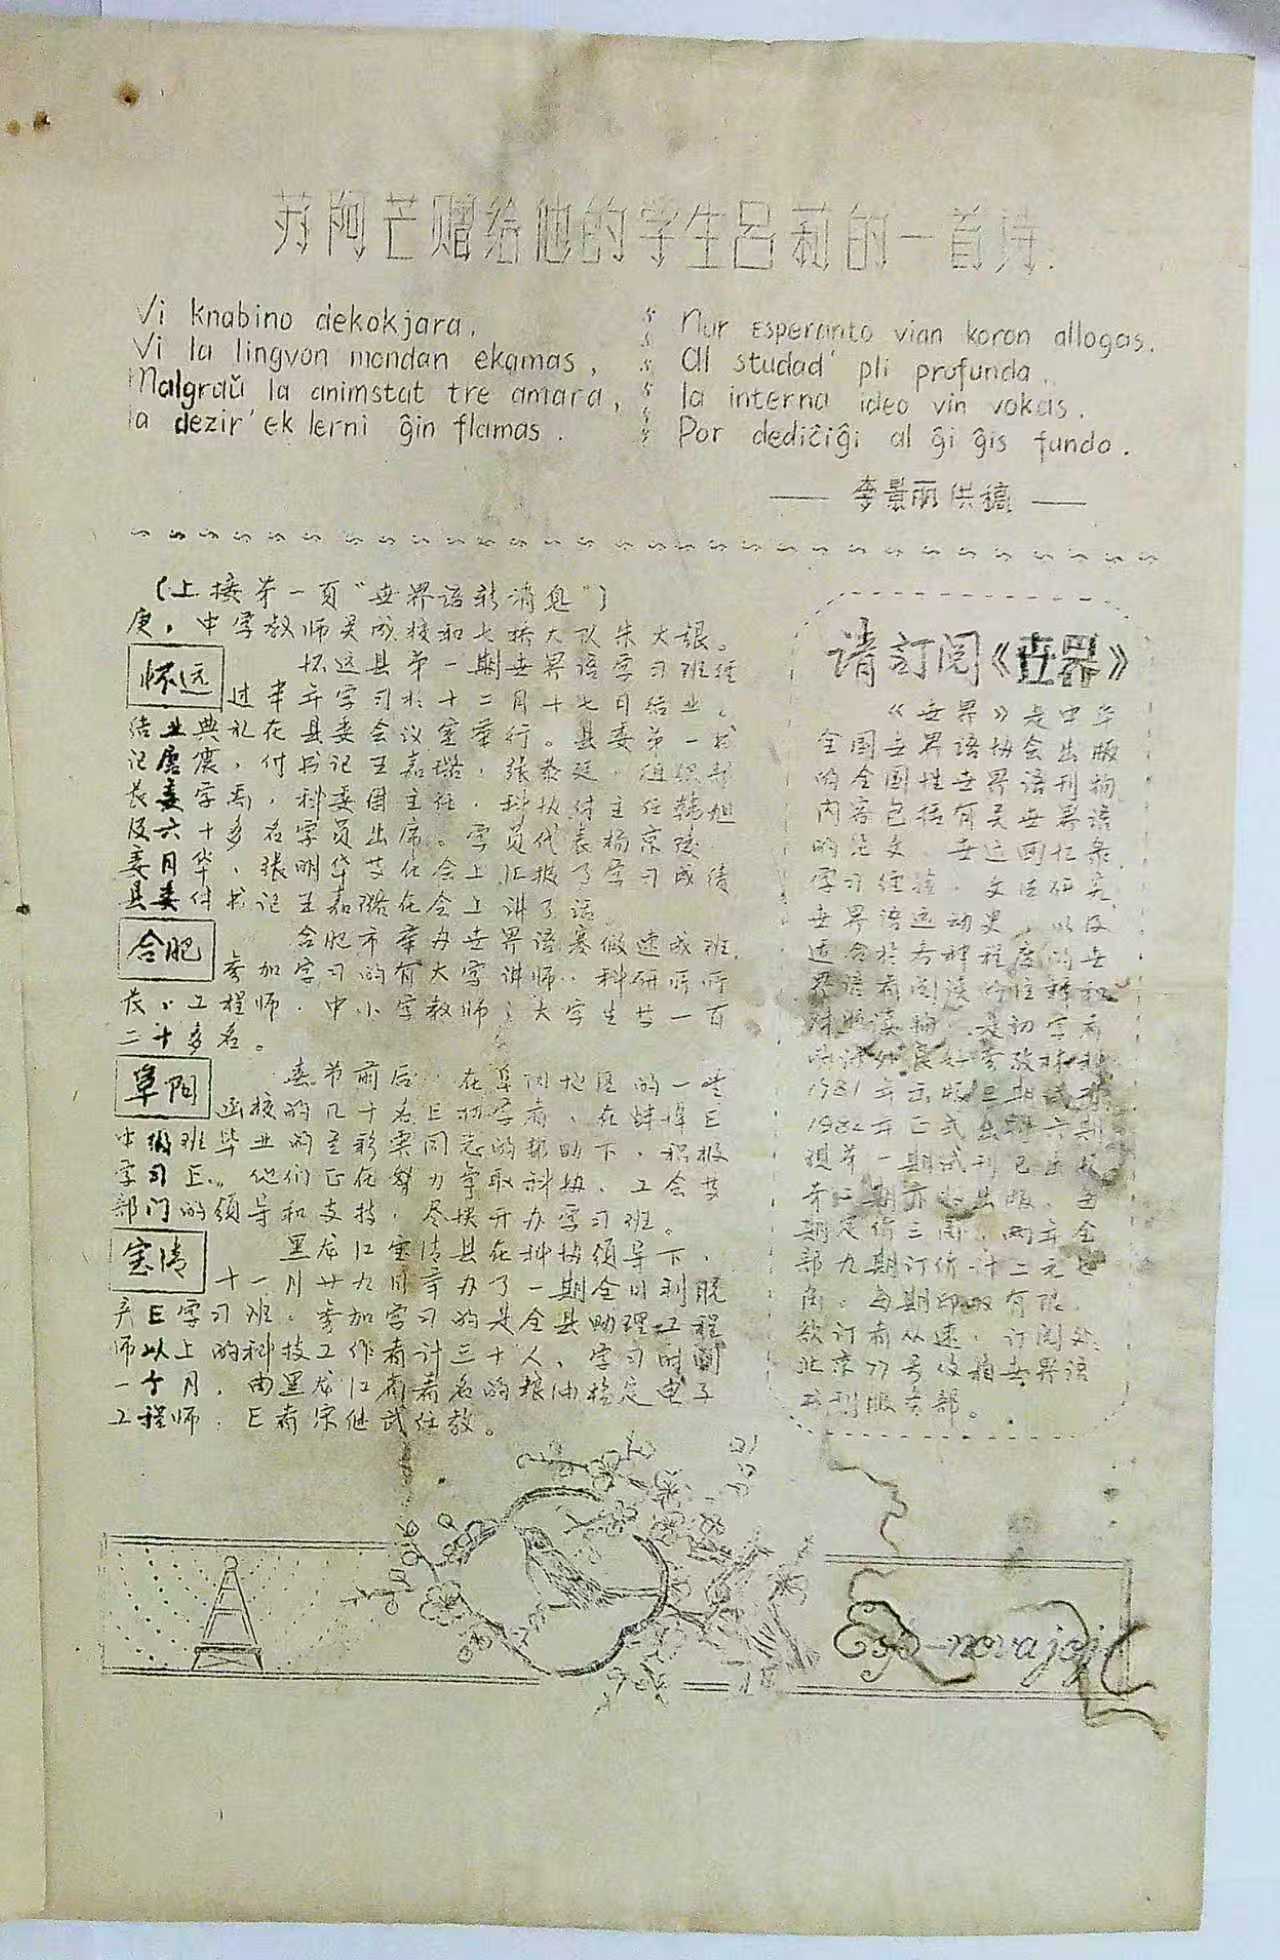 苏阿芒赠给他的学生吕莉的一首诗.
Vi knabino dekokjara.
Vi la lingvon mondan ekamas,
Malgraŭ la animstat tre amara,
la dezir' ek lerni ĝin flamas.
Nur Esperanto vian koron allogas.
al studad' pli profunda.
la interna ideo vin vokas.
Por dediĉiĝi al ĝi ĝis fundo.
—— 李景丽供稿 ——
(上接第一页"世界语新消息")
庚,中学教师吴成校和七桥大队朱大银。
怀远
怀远县第一期世界语学习班经
过半年学习于十二月十七日结业。
结业典礼在县委会议室举行。县委第一书
记 震,付书记王嘉璐,张 廷,组织部
长 学禹,科委 主任,科协付主任韩旭
及六十多名学员出席。学员代表杨京陵
委月华,张明华等在会上汇报了学习成绩
县委付书记王嘉璐在会上讲了话。
合肥
合肥市举办世界语寒假速成班,
参加学习的有大学讲师,科研所所
长,工程师,中小学教师,大学生共一百
二十多名。
阜阳
春节前后,在阜阳地区的一些
函授的几十名E初学者,在蚌埠E
中级班毕业的 同志的帮助下,积极
学习E。他们正在努力争取科协、工会等
部门的领导和支持,尽快开办学习班。
宝清
黑龙江宝清县在科协领导下,
十一月廿九日举办了一期全日制脱
产E学习班,参加学习的是全县助理工程
师以上的科技工作者计三十人,学习时间
一个月,由黑龙江省著名的粮油检定电子
工程师,E者宋继武任教。
请订阅《世界》
《世界》是中华
全国世界语协会出版
的全国性世界语刊物
内容包括有关世界语
的论文、世运回忆录,
学习经验,文法研究,
世界语运动史,以及
适合于各种程度的世
界语者阅读的注释和
对照读物,是初学者
的课外良好参考材料
1981年出版三期试刊
1982年正式出版六期
现第一期试刊已出版
第二期亦 出版,每
期定价三角,两年全
部九期订价计二元七
角,每期印数有限,
欲订者从速,订阅处:
北京77号信箱世界语
书刊服务部。
Esp-novajoj